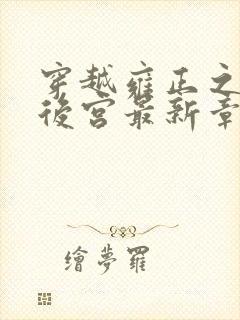 穿越雍正之
後宮最新章
繪夢羅